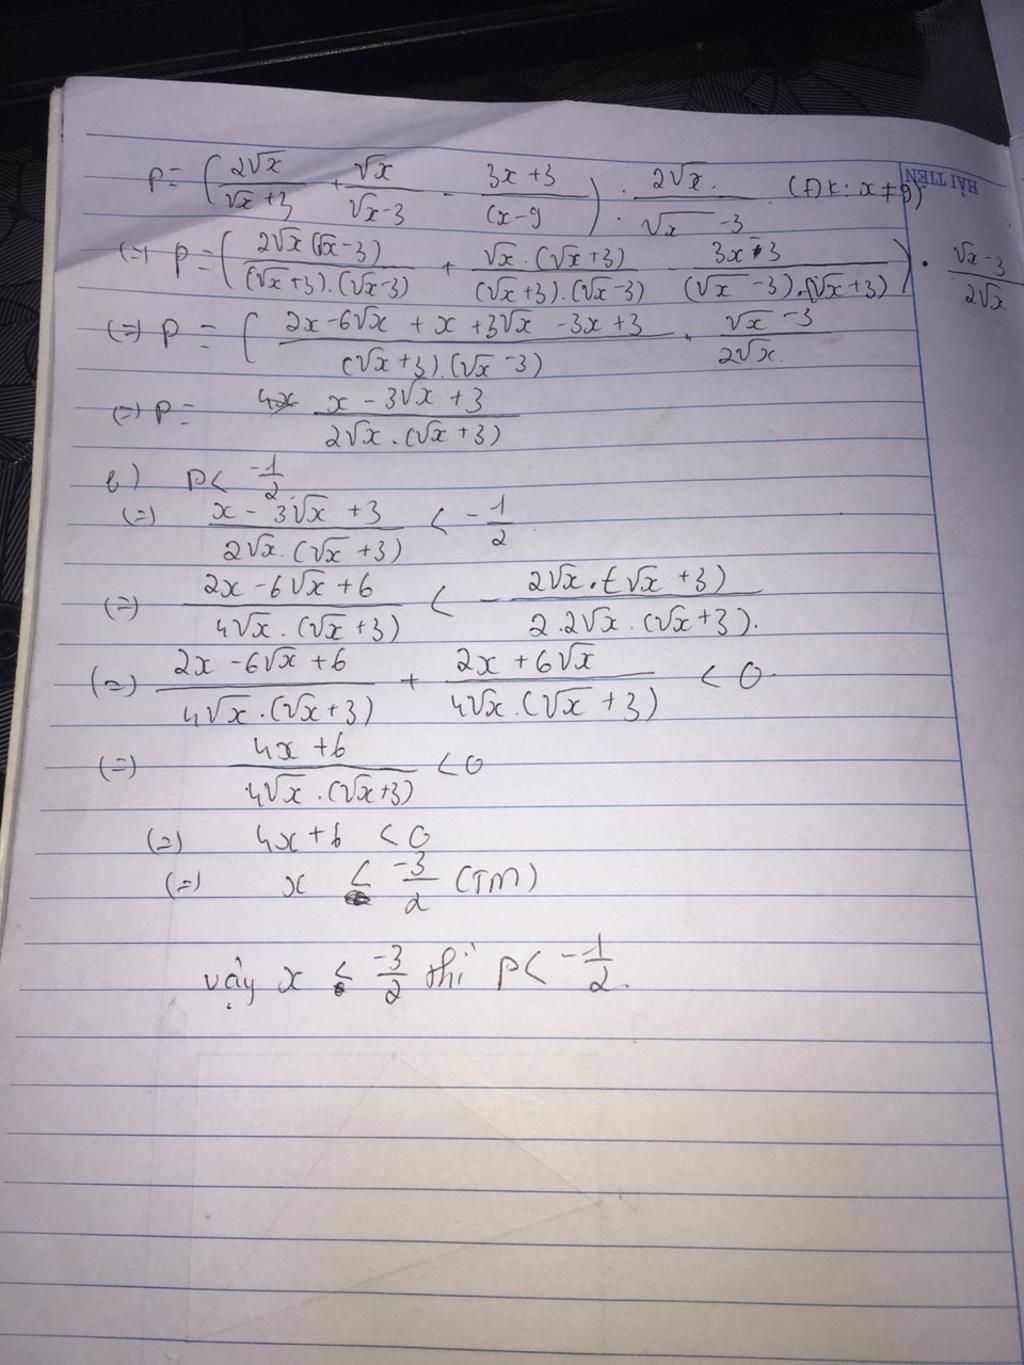 P = ( 2√x / √x+3 + √x / √x-3 - 3x+3 / (x-9 ) : 2√x / √x -3 (ĐK: x≠9)
HẢI TIẾN
(=) P = ( 2√x(√x-3) / (√x+3).(√x-3) + √x.(√x+3) / (√x+3).(√x-3) - 3x+3 / (√x-3).(√x+3) ) . √x-3 / 2√x
(=) P = ( 2x-6√x + x +3√x -3x+3 / (√x+3).(√x-3) . √x-3 / 2√x
(=) P = x - 3√x + 3 / 2√x.(√x+3)
b) P < -1/2
(=) x - 3√x + 3 / 2√x.(√x+3) < -1/2
(=) 2x-6√x+6 / 4√x.(√x+3) < - 2√x.(√x+3) / 2.2√x.(√x+3).
(=) 2x-6√x+6 / 4√x.(√x+3) + 2x+6√x / 4√x.(√x+3) < 0
(=) 4x+6 / 4√x.(√x+3) < 0
(=) 4x+6 < 0
(=) x < -3/2 (TM)
vậy x < -3/2 thì P < -1/2.